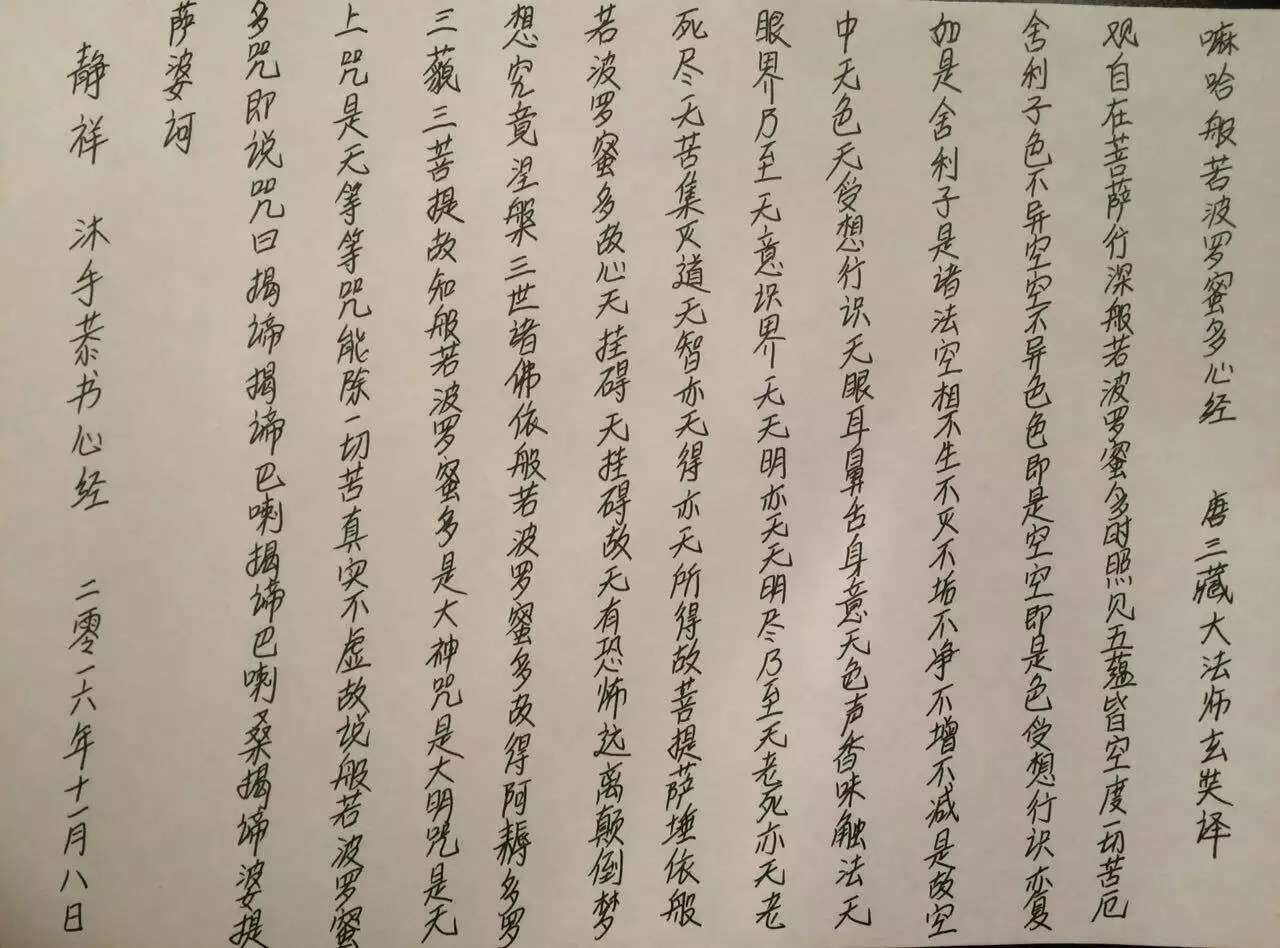 嘛哈般若波罗蜜多心经 唐三藏大法师玄奘译
观自在菩萨行深般若波罗蜜多时照见五蕴皆空度一切苦厄
舍利子色不异空空不异色色即是空空即是色受想行识亦复
如是舍利子是诸法空相不生不灭不垢不净不增不减是故空
中无色无受想行识无眼耳鼻舌身意无色声香味触法无
眼界乃至无意识界无无明亦无无明尽乃至无老死亦无老
死尽无苦集灭道无智亦无得亦无所得故菩提萨埵依般
若波罗蜜多故心无挂碍无挂碍故无有恐怖远离颠倒梦
想究竟涅槃三世诸佛依般若波罗蜜多故得阿耨多罗
三藐三菩提故知般若波罗蜜多是大神咒是大明咒是无
上咒是无等等咒能除一切苦真实不虚故说般若波罗蜜
多咒即说咒曰揭谛揭谛巴喇揭谛巴喇桑揭谛婆提
萨婆诃
静祥 沐手恭书心经 二零一六年十一月八日